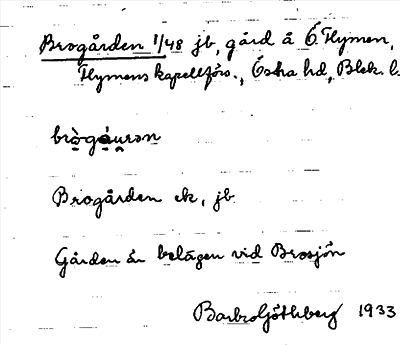 Brogården 1/48 jb, gård å Ö. Flymen,
Flymens kapellförs., Östra hd, Blek. l.
Brogården ek, jb
Gården är belägen vid Brosjön
Barbro Göthberg 1933